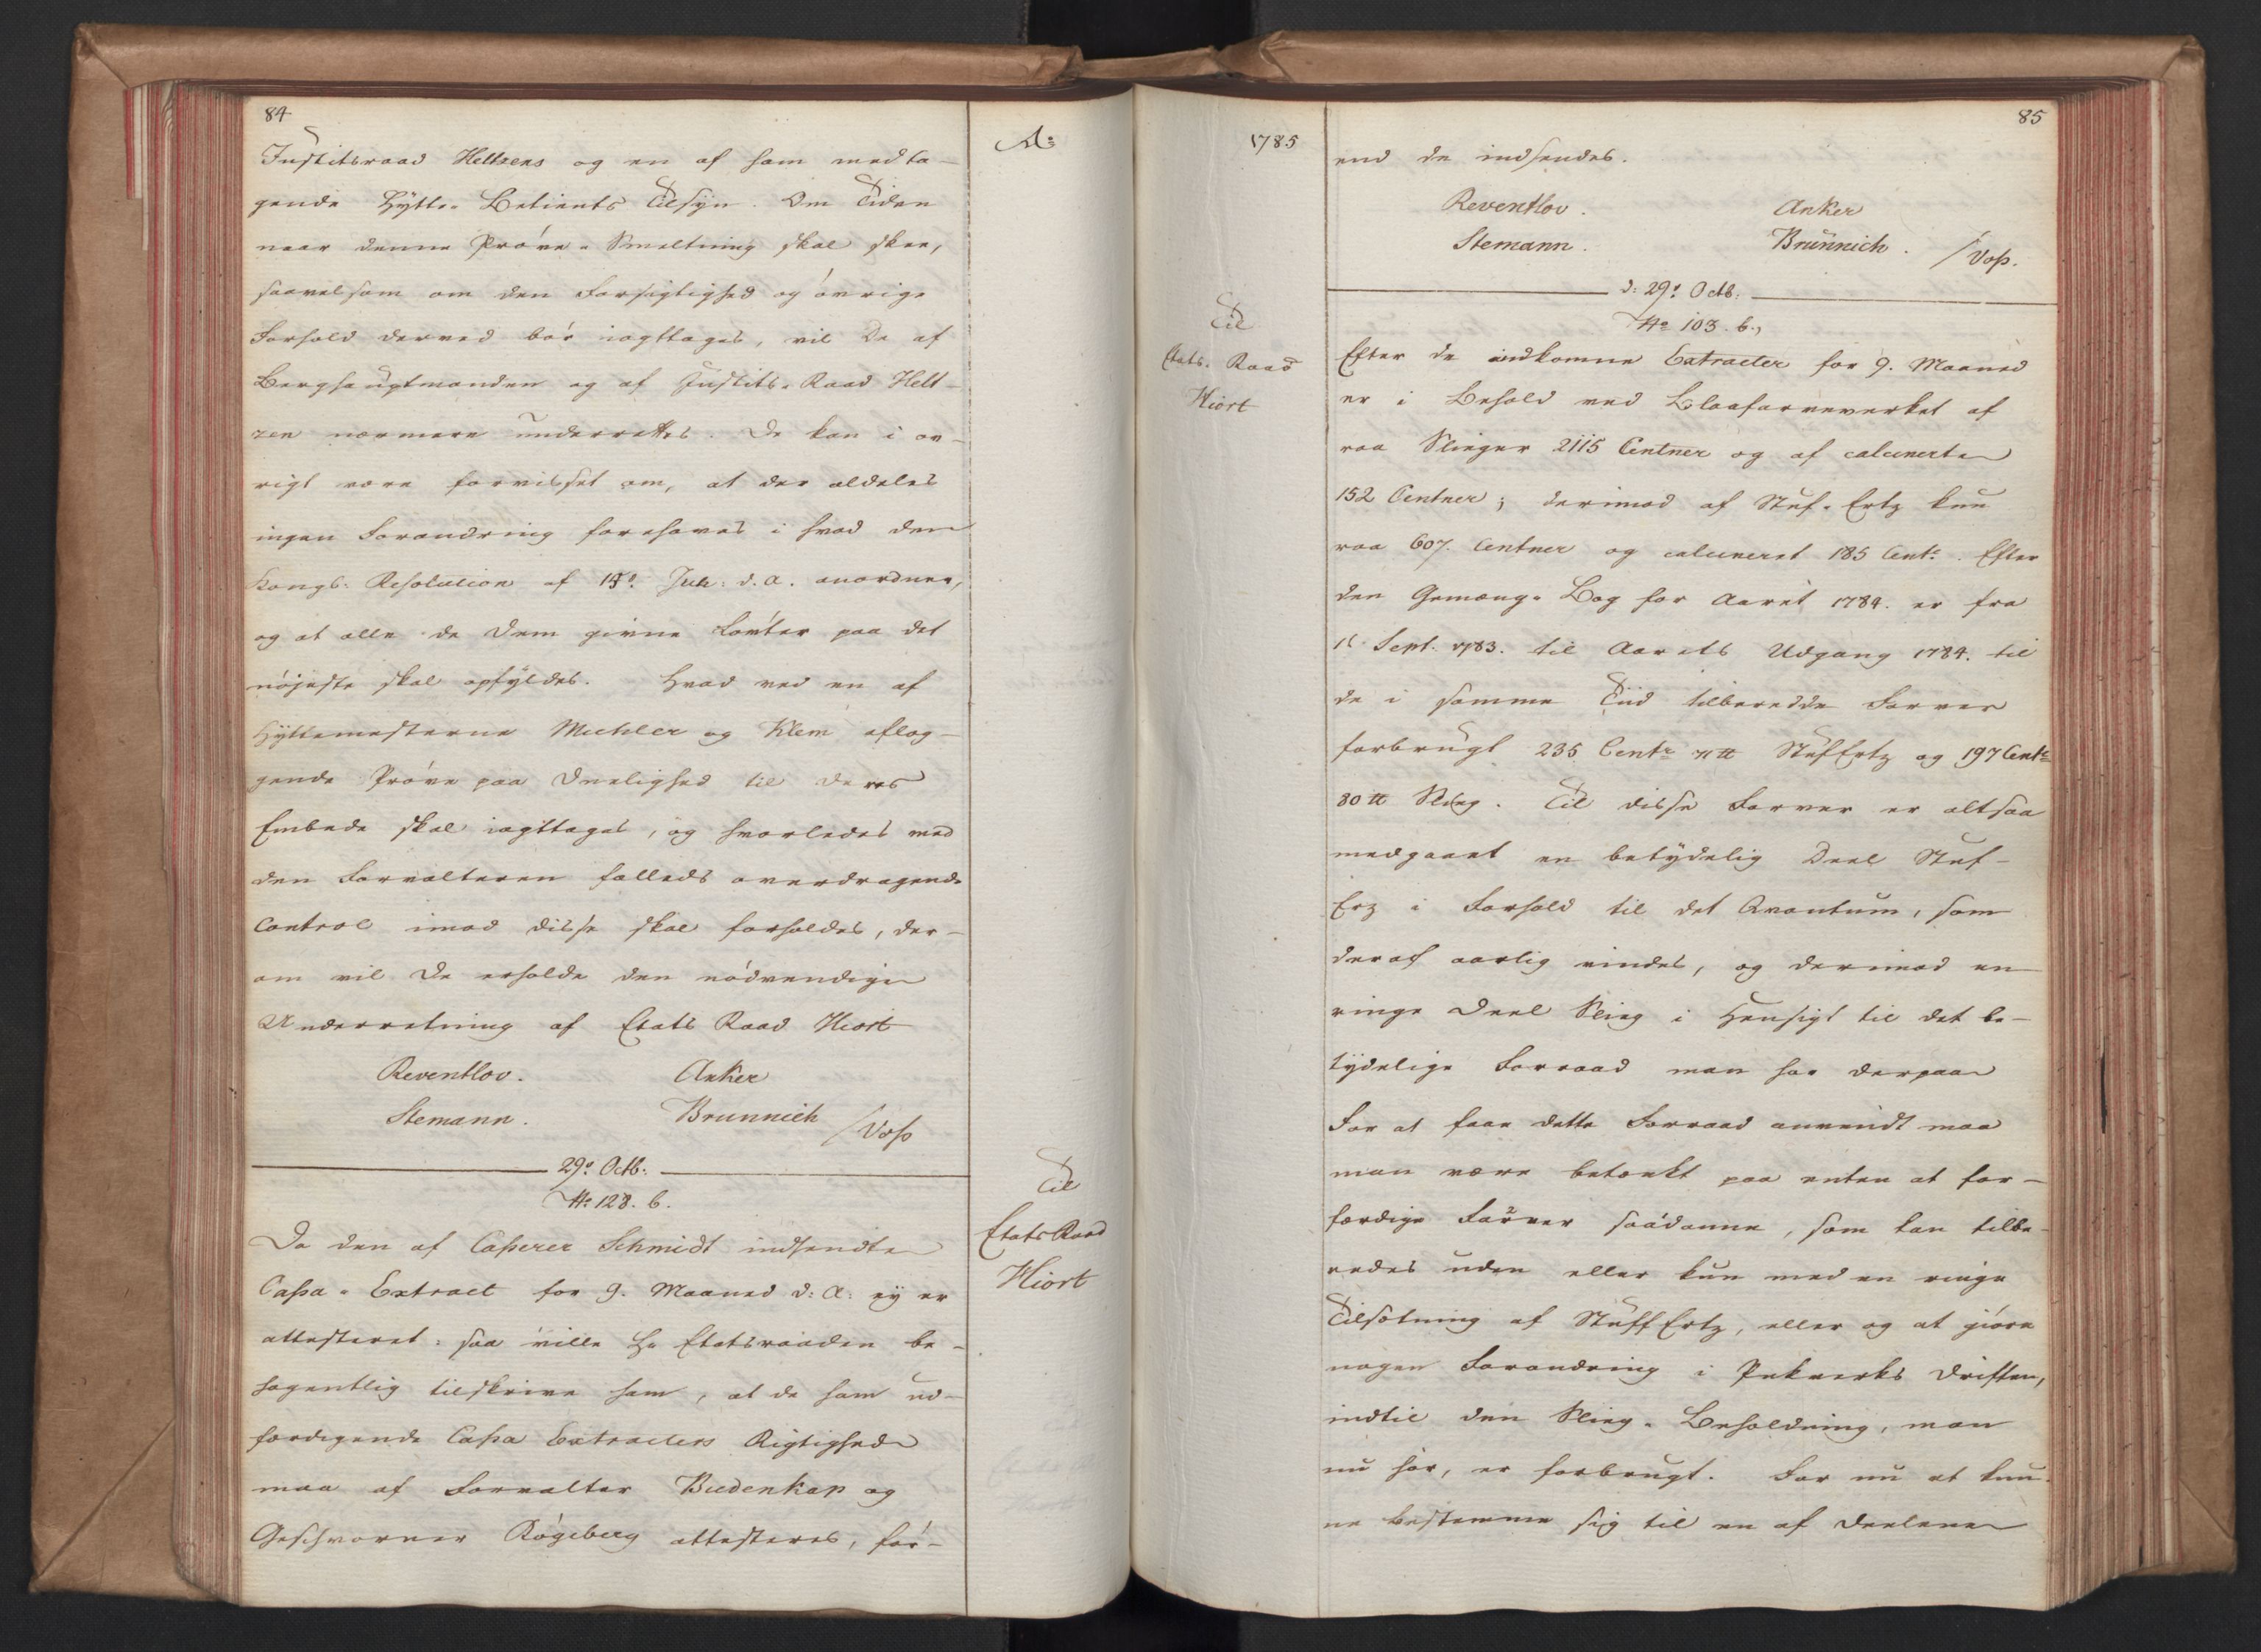 84
Ao
Justitsraad Heltzens og en af ham medta-
gende Hytte-Betients Tilsyn. Om Tiden
naar denne Prøve-Smeltning skal skee,
saavelsom om den Forsigtighed og øvrige
Forhold derved bør iagttages, vil De af
Berghauptmanden og af Justits-Raad Helt-
zen nærmere underrettes. De kan i øv-
rigt være forvisset om, at der aldeles
ingen Forandring forehaves i hvad den
Kongl: Resolution af 14de Jun: d. a. anordner,
og at alle de Dem givne Løvter paa det
nøjeste skal opfyldes. Hvad ved en af
Hyttemesterne Muhler og Klem aflæg-
gende Prøve paa Duelighed til deres
Embede skal iagttages, og hvorledes med
den Forvalteren fælleds overdragende
Control imod disse skal forholdes, der-
om vil De erholde den nødvendige
Underretning af Etats Raad Hiort
Reventlov. Anker
Stemann. Brunnich /Voss
29de Octb:
No 128. b.
Til
Etats Raad
Hiort
Da den af Casserer Schmidt indsendte
Cassa-Extract for 9. Maaned d: A: ey er
attesteret: saa ville Hr Etatsraaden be-
hagentlig tilskrive ham, at de ham ud-
færdigende Cassa Extracters Rigtighed
maa af Forvalter Budenkap og
Geschworner Røgeberg attesteres, før-
1785
85
end de indsendes.
Reventlov. Anker
Stemann. Brünnich. /Voss.
d: 29de Octb:
No 103. b.
Til
Etats-Raad
Hiort
Efter de indkomne Extracter for 9. Maaned
er i Behold ved Blaafarveverket af
raa Slieger 2115 Centner og af calcinerte
152 Centner; derimod af Stuf-Ertz kun
raa 607. Centner og calcineret 185 Centr. Efter
den Gemæng-Bog for Aaret 1784. er fra
1t Sept. 1783. til Aarets Udgang 1784. til
de i samme Tiid tilberedde Farver
forbrugt 235 Centr 71 ℔ StufErtz og 197 Centr
80 ℔ Slieg. Til disse Farver er altsaa
medgaaet en betydelig Deel Stuf-
Erz i Forhold til det Qvantum, som
deraf aarlig vindes, og derimod en
ringe Deel Slieg i Hensigt til det be-
tydelige Forraad man har derpaa
For at faae dette Forraad anvendt maa
man være betænkt paa enten at for-
færdige Farver saadanne, som kan tilbe-
redes uden eller kun med en ringe
Tilsætning af StuffErtz, eller og at giøre
nogen Forandring i Pukverks Driften,
indtil den Slieg-Beholdning, man
nu har, er forbrugt. For nu at kun-
ne bestemme sig til en af Deelene